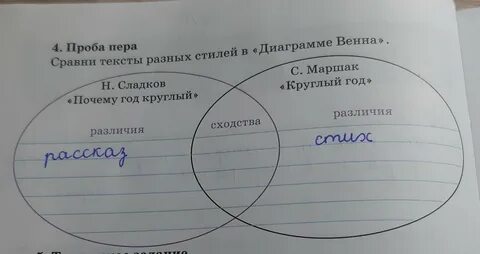 4. Проба пера
Сравни тексты разных стилей в «Диаграмме Венна».
Н. Сладков
«Почему год круглый»
С. Маршак
«Круглый год»
различия
сходства
различия
рассказ
стих